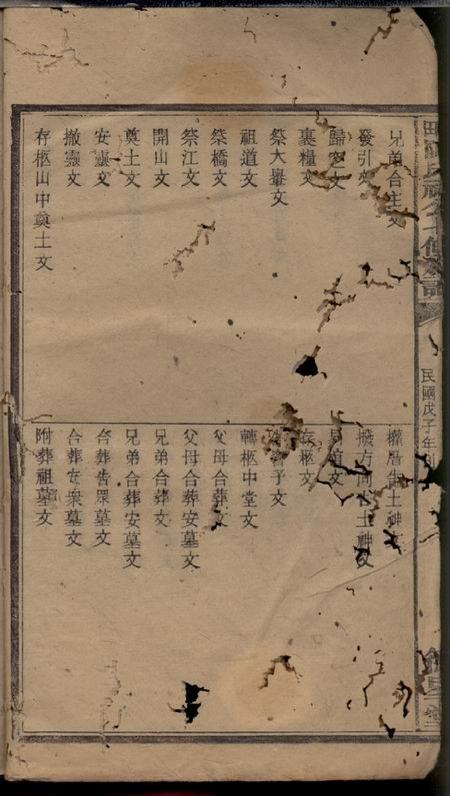 兄弟合主文
發引文
歸空文
裹糧文
祭大轝文
祖道文
祭橋文
祭江文
開山文
奠土文
安靈文
撤靈文
存柩山中奠土文
土神
土神文
柩文
文
轉柩中堂文
父母合葬文
父母合葬安墓文
兄弟合葬文
兄弟合葬安墓文
合葬告眾墓文
合葬安眾墓文
附葬祖墓文
民國戊子年